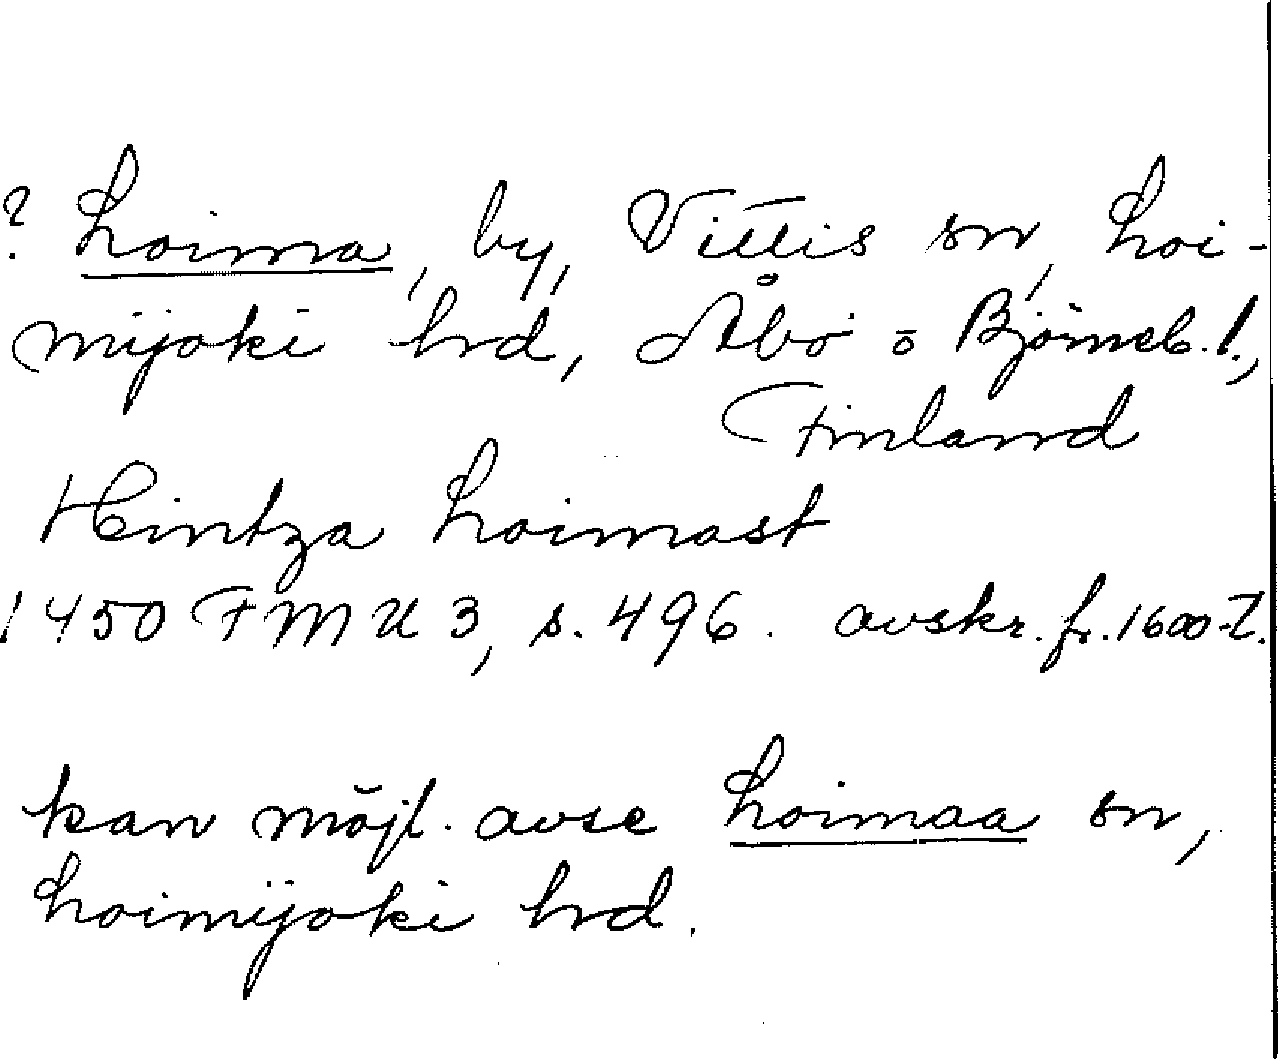 ? Loima, by, Vittis sn, Loi-
mijoki hrd, Åbo o Björneb. l.,
Finland
Hintza Loimast
1450 FMU 3, s. 496. avskr. fr. 1600-t.
kan möjl. avse Loimaa sn,
Loimijoki hrd.